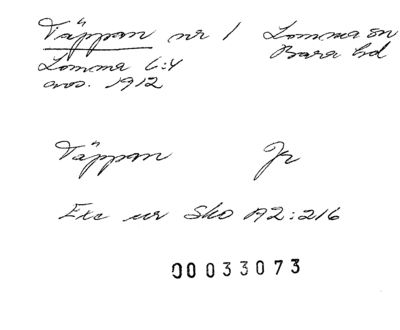 Täppan nr 1 Lomma sn
Lomma 6:4 Bara hd
avs. 1912
Täppan Jr
Exc ur Sko A2:216
00033073